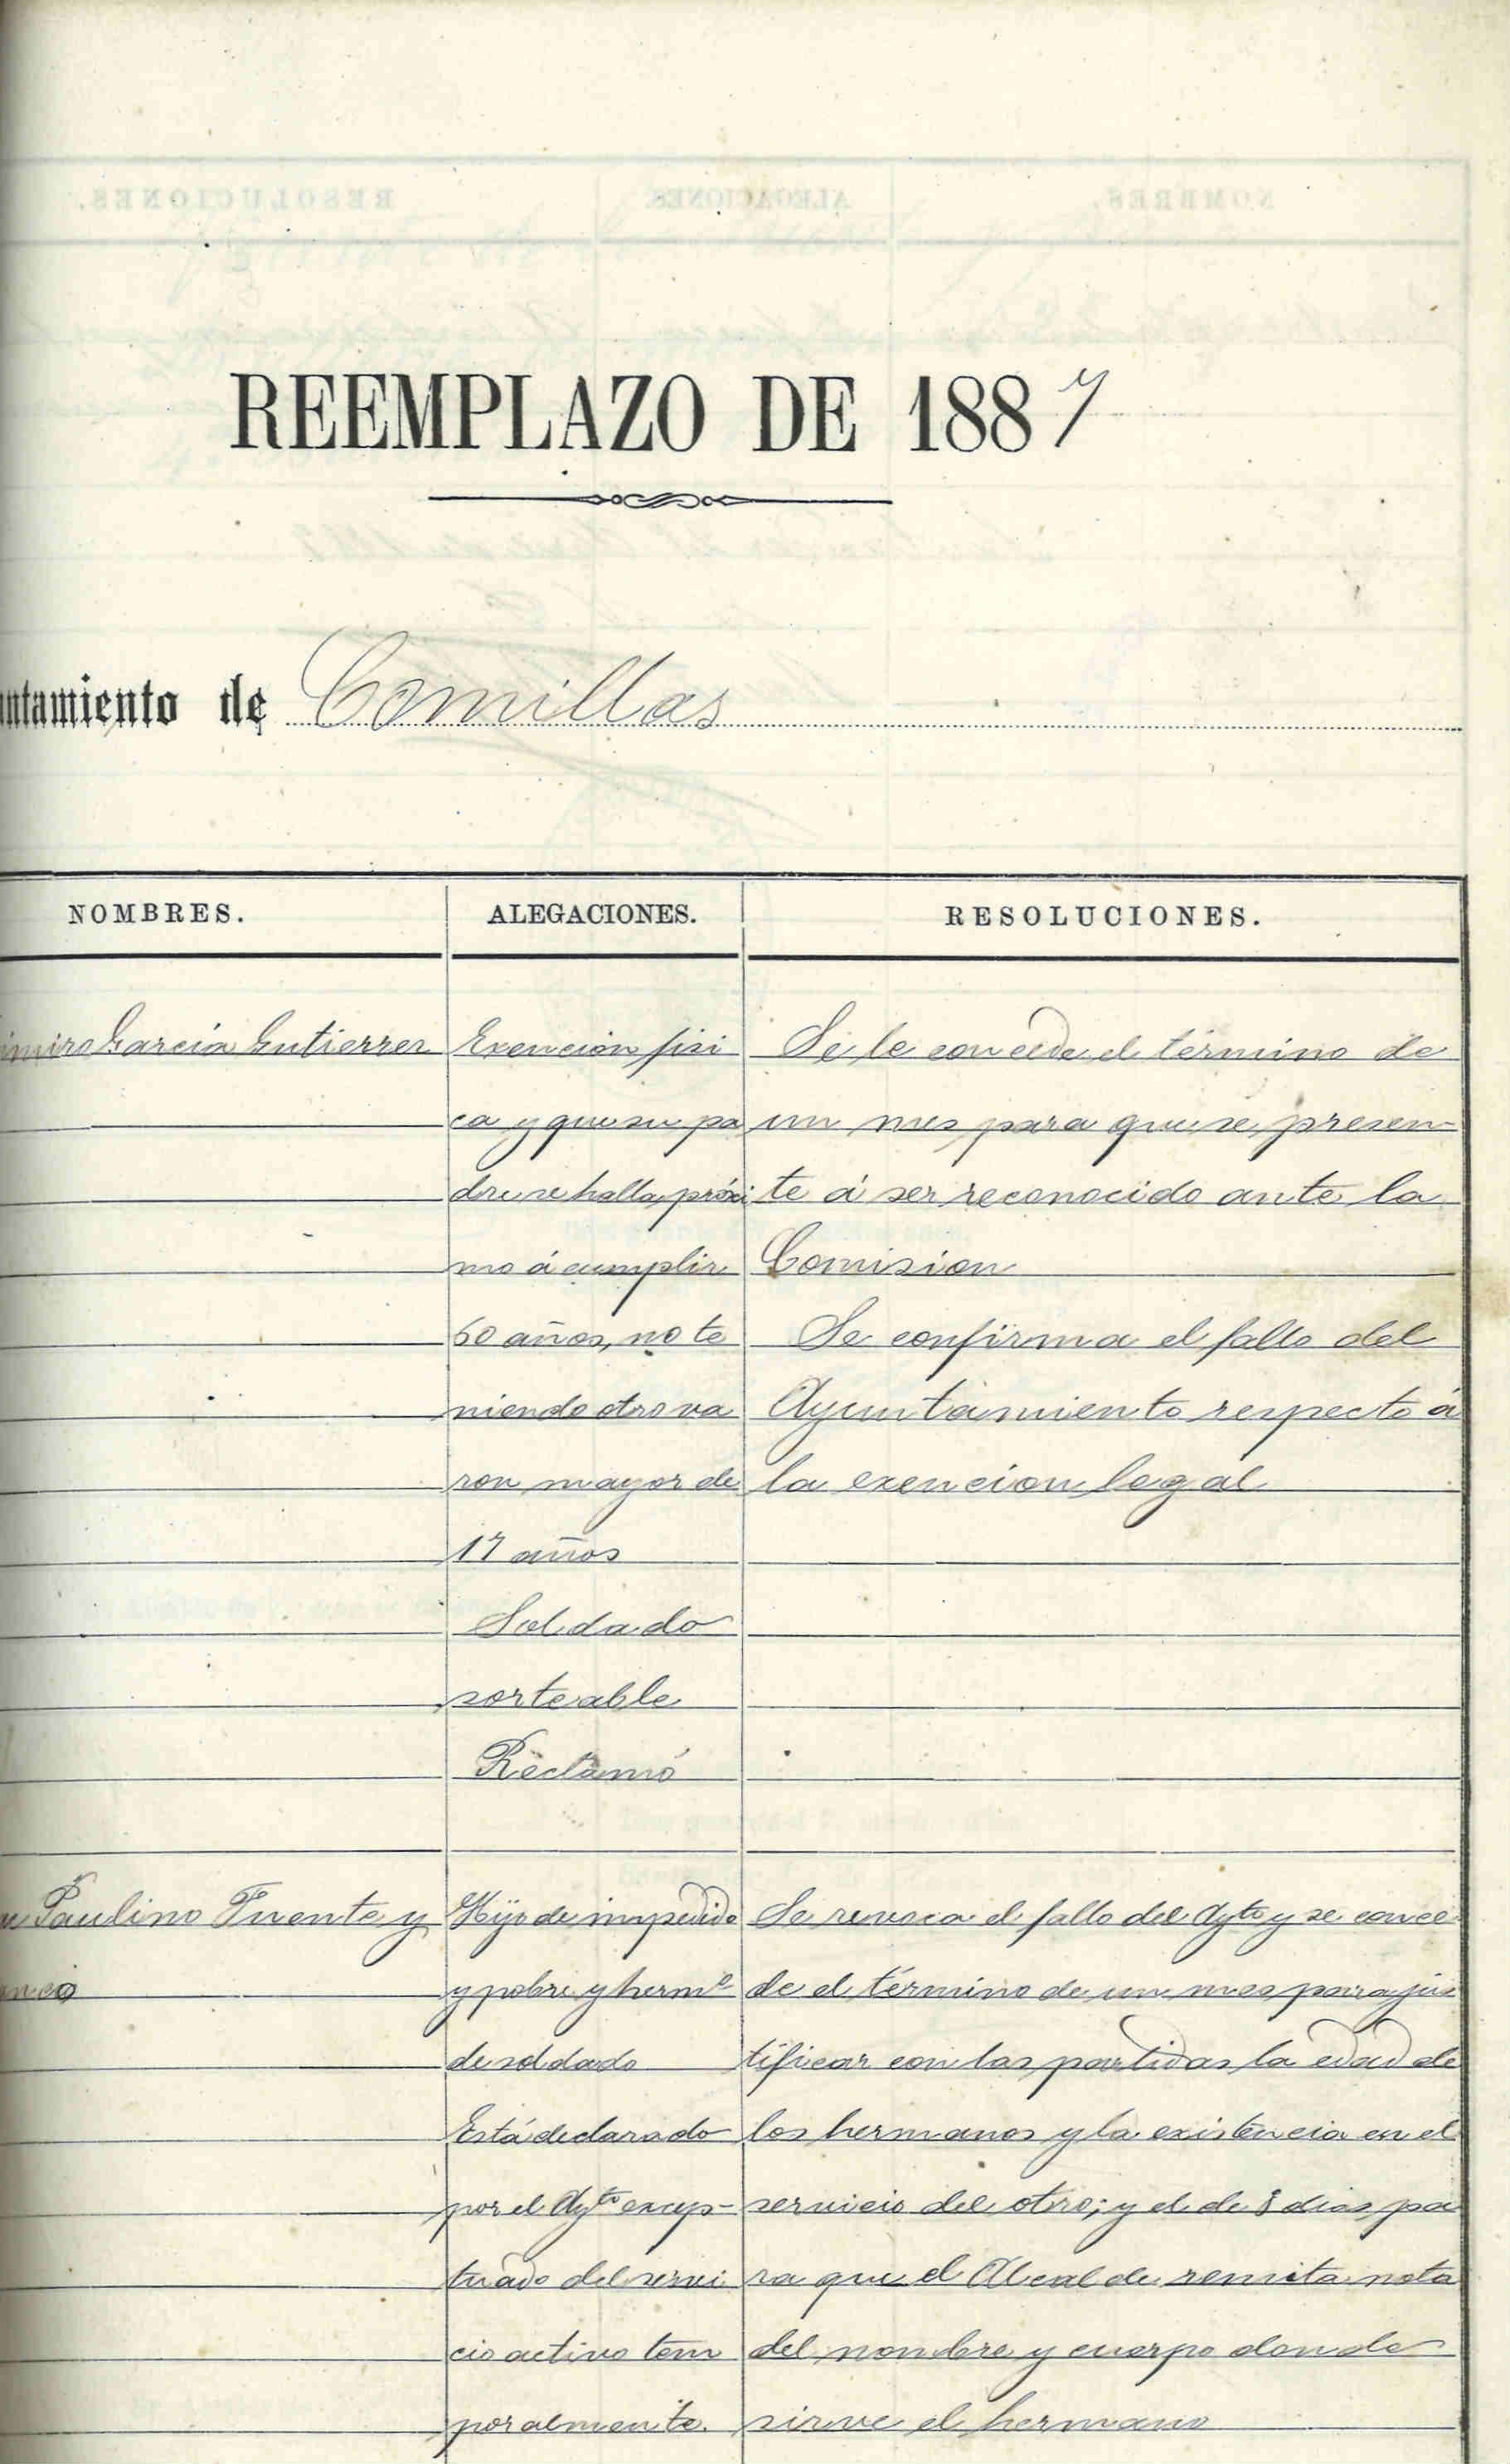 REEMPLAZO DE 1887
ntamiento de Comillas
NOMBRES.
ALEGACIONES.
RESOLUCIONES.
imiro García Gutierrez
Exencion fisi
ca y que su pa
dre se halla próxi
mo á cumplir
60 años, no te
niendo otro va
ron mayor de
17 años
Soldado
sorteable
Reclamó
Se le concede el término de
un mes para que se presen-
te á ser reconocido ante la
Comision
Se confirma el fallo del
Ayuntamiento respecto á
la exencion legal
Paulino Fuente y
Hijo de impedido
y pobre y hermº
de soldado
Está declarado
por el Aytº excep-
tuado del servi
cio activo tem
poralmente.
Se revoca el fallo del Aytº y se conce
de el término de un mes para jus
tificar con las partidas la edad de
los hermanos y la existencia en el
servicio del otro; y el de 8 dias pa
ra que el Alcalde remita nota
del nombre y cuerpo donde
sirve el hermano